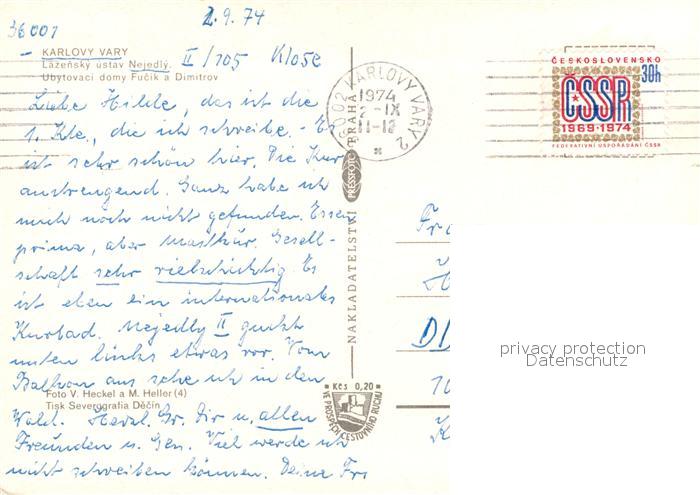 36001
2.9.74
KARLOVY VARY
Lázeňský ústav Nejedlý.
II/105 Klose
Ubytovací domy Fučík a Dimitrov
Liebe Hilde, das ist die
1. Kte., die ich schreibe. - Es
ist sehr schön hier. Die Kur
anstrengend. Ganz habe ich
mich noch nicht gefunden. Essen
prima, aber Mastkur. Gesell-
schaft sehr vielschichtig. Es
ist eben ein internationales
Kurbad. Nejedly II guckt
unten links etwas vor. Vom
Balkon aus sehe ich in den
Foto V. Heckel a M. Heller (4)
Tisk Severografia Děčín
Wald. Herzl. Gr. Dir u. allen
Freunden u. Gen. Viel werde ich
nicht schreiben können. Deine
NAKLADATELSTVÍ PRESSFOTO PRAHA
Kčs 0,20
VE PROSPĚCH CESTOVNÍHO RUCHU
KARLOVY VARY 2
1974
-IX
ČESKOSLOVENSKO
30h
ČSSR
1969·1974
FEDERATIVNÍ USPOŘÁDÁNÍ ČSSR
Fr
DD
privacy protection
Datenschutz